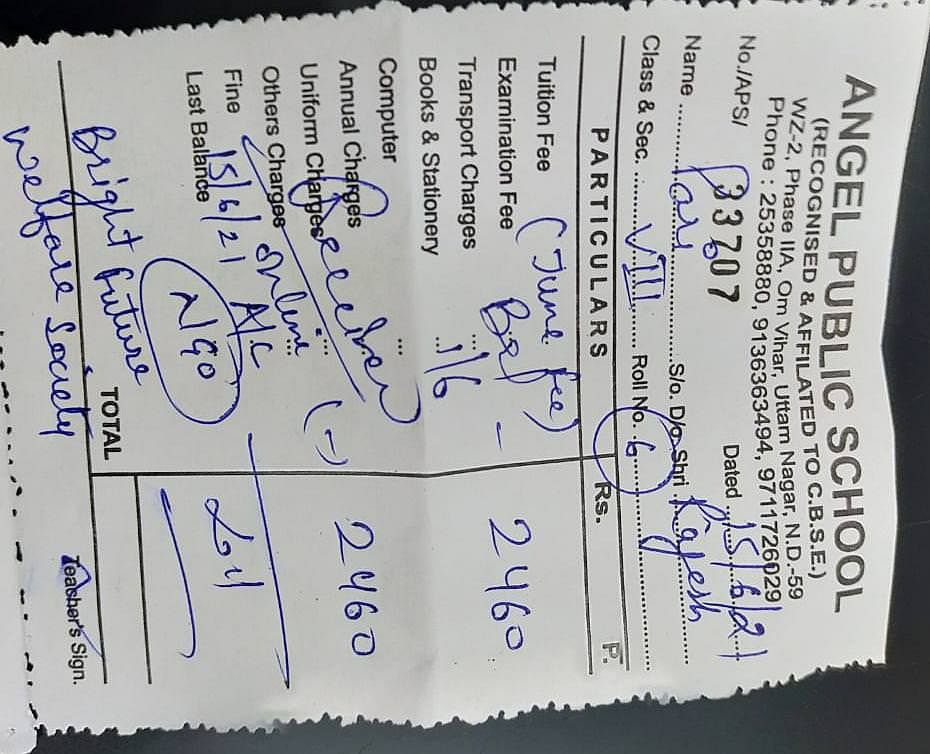 ANGEL PUBLIC SCHOOL
(RECOGNISED & AFFILATED TO C.B.S.E.)
WZ-2, Phase IIA, Om Vihar, Uttam Nagar, N.D.-59
Phone : 25358880, 9136363494, 9711726029
No./APS/ 33707 Dated 15/6/21
Name S/o. D/o. Shri Rajesh
Class & Sec. VIII Roll No. 6
PARTICULARS Rs. P.
Tuition Fee (June fee)
Examination Fee 2460
Transport Charges
Books & Stationery 1/6
Computer
Annual Charges Received (-) 2460
Uniform Charges
Others Charges Online
Fine 15/6/21 A/C
Last Balance
NGO
TOTAL
Bright future
Welfare Society
Teacher's Sign.